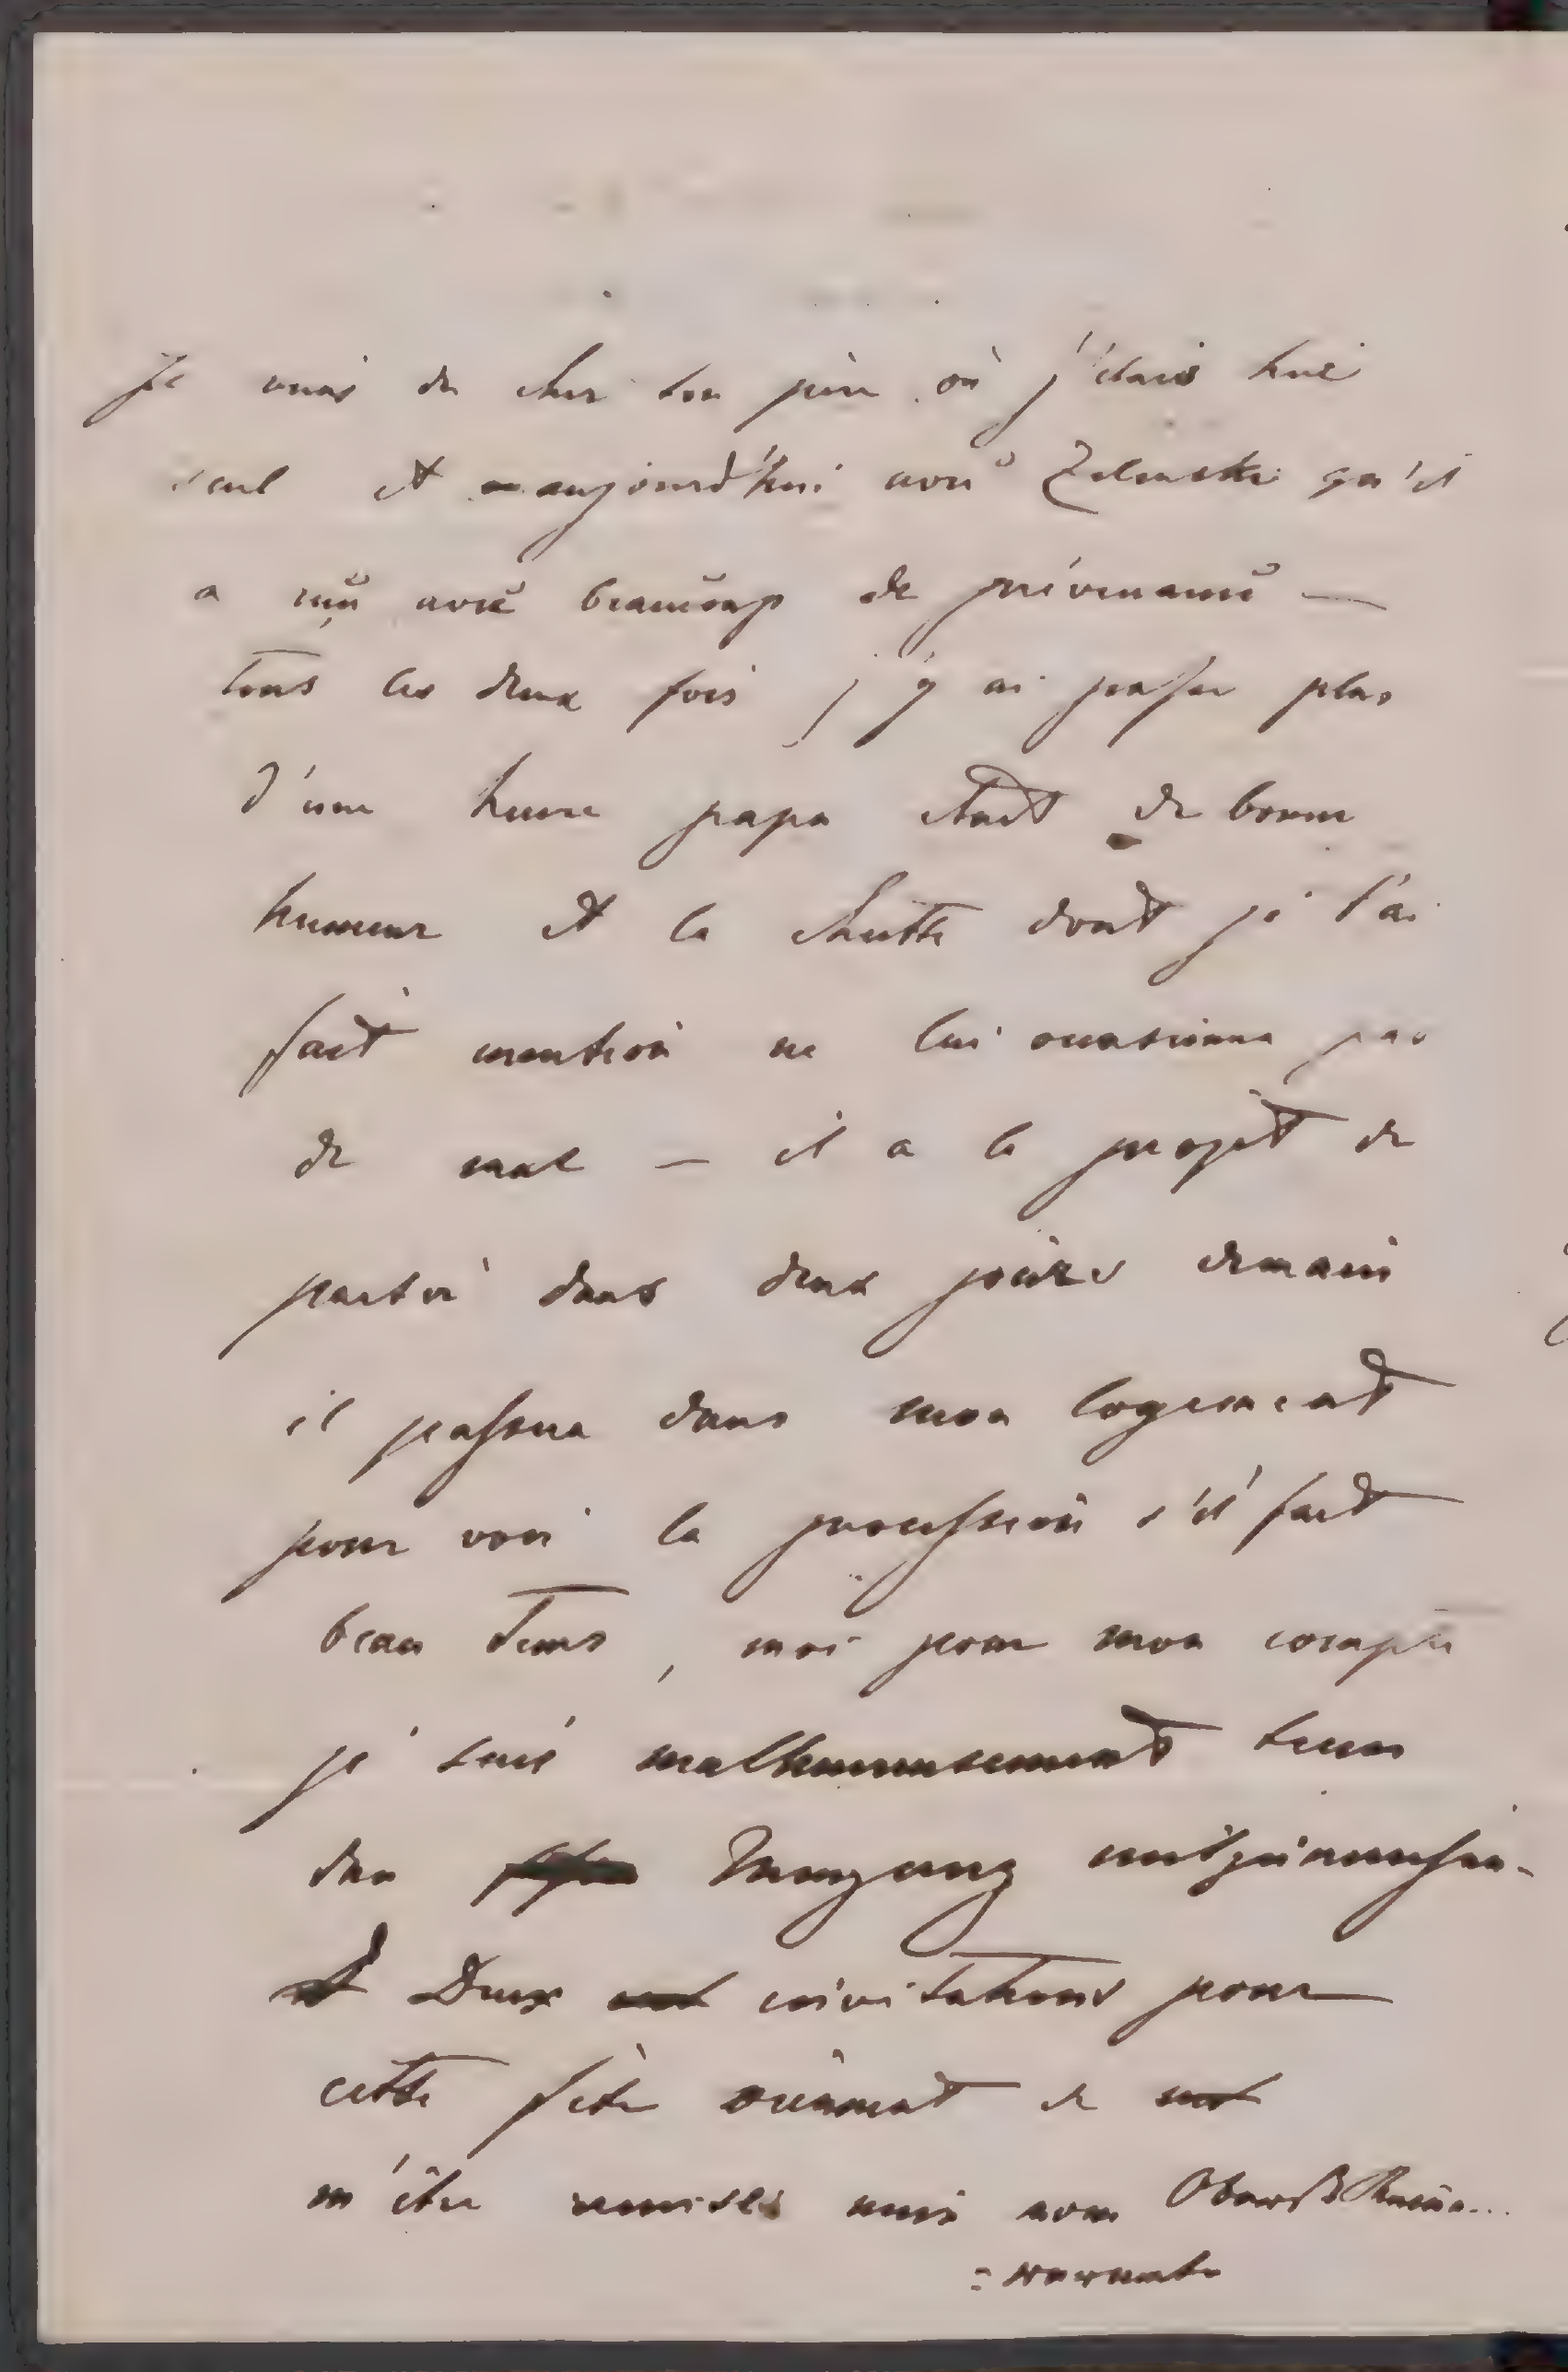 Je viens de cher ton père où j'étais hier
seul et aujourd'hui avec Zelenski qu'il
a reçu avec beaucoup de prévenance —
tous les deux fois j'y ai passer plus
d'une heure papa était de bonne
humeur et la chutte dont je t'ai
fait mention ne lui occasionna pas
de mal — il a le projet de
partir dans deux jours demain
il passera dans mon logement
pour voir la procession s'il fait
beau tems, moi pour mon compte
je suis malheureusement tenu
den Umgang mitzumachen -
Deux invitations pour
cette fête viennent de
m'être remises une vom Oberst